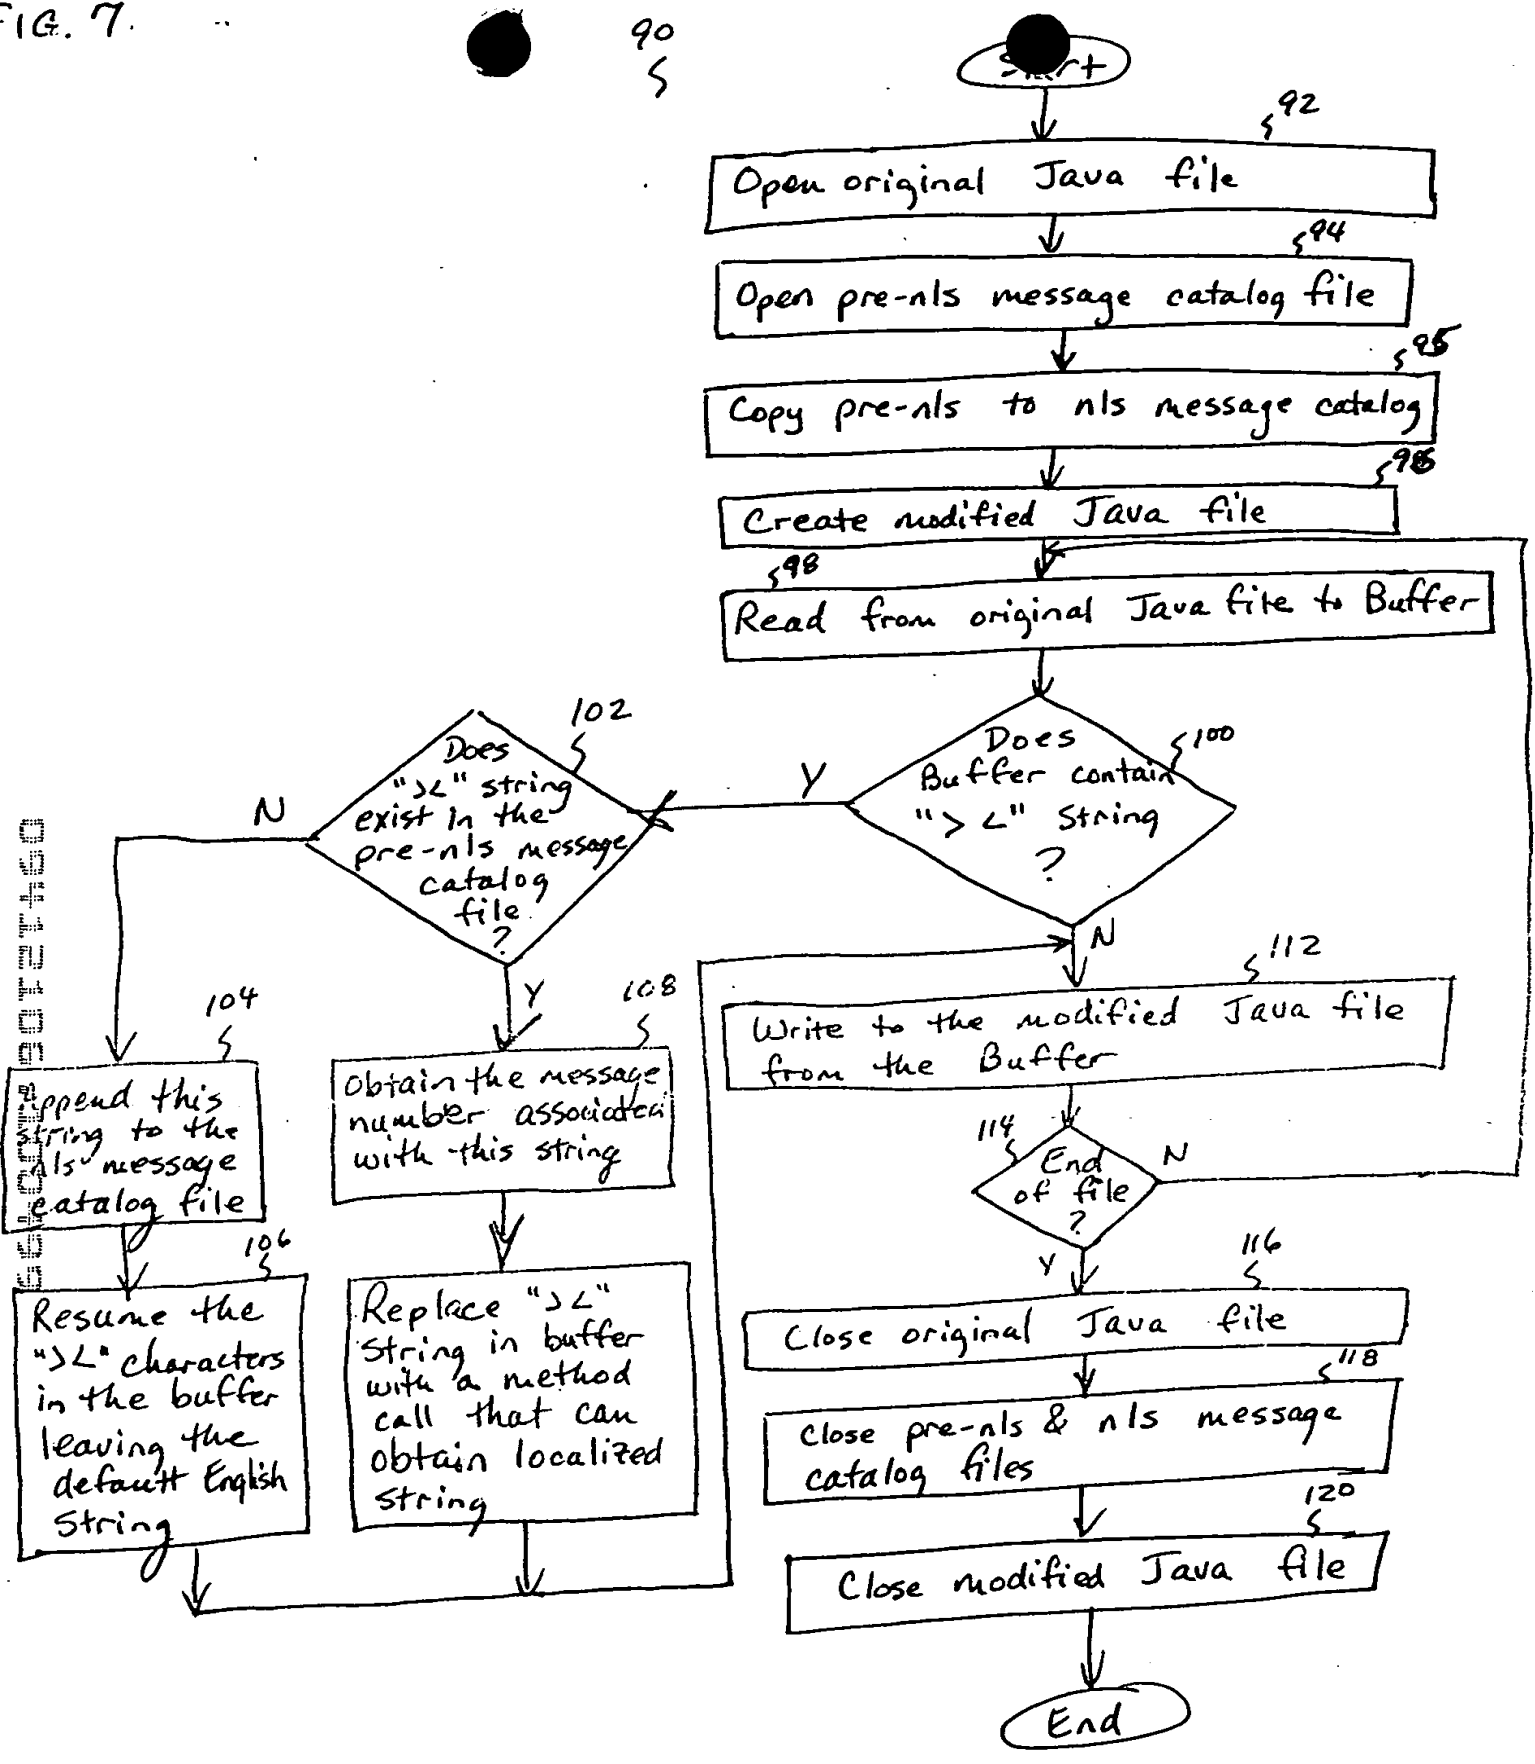 FIG. 7.
90
Start
92
Open original Java file
94
Open pre-nls message catalog file
95
Copy pre-nls to nls message catalog
Create modified Java file
98
Read from original Java file to Buffer
100
Does
Buffer contain
"> <" String
?
Y
N
102
Does
"><" string
exist in the
pre-nls message
catalog
file
?
N
Y
104
Append this
string to the
nls message
catalog file
106
Resume the
"><" characters
in the buffer
leaving the
default English
String
108
Obtain the message
number associated
with this string
Replace "><"
String in buffer
with a method
call that can
obtain localized
string
112
Write to the modified Java file
from the Buffer
114
End
of file
?
N
Y
116
Close original Java file
118
Close pre-nls & nls message
catalog files
120
Close modified Java file
End